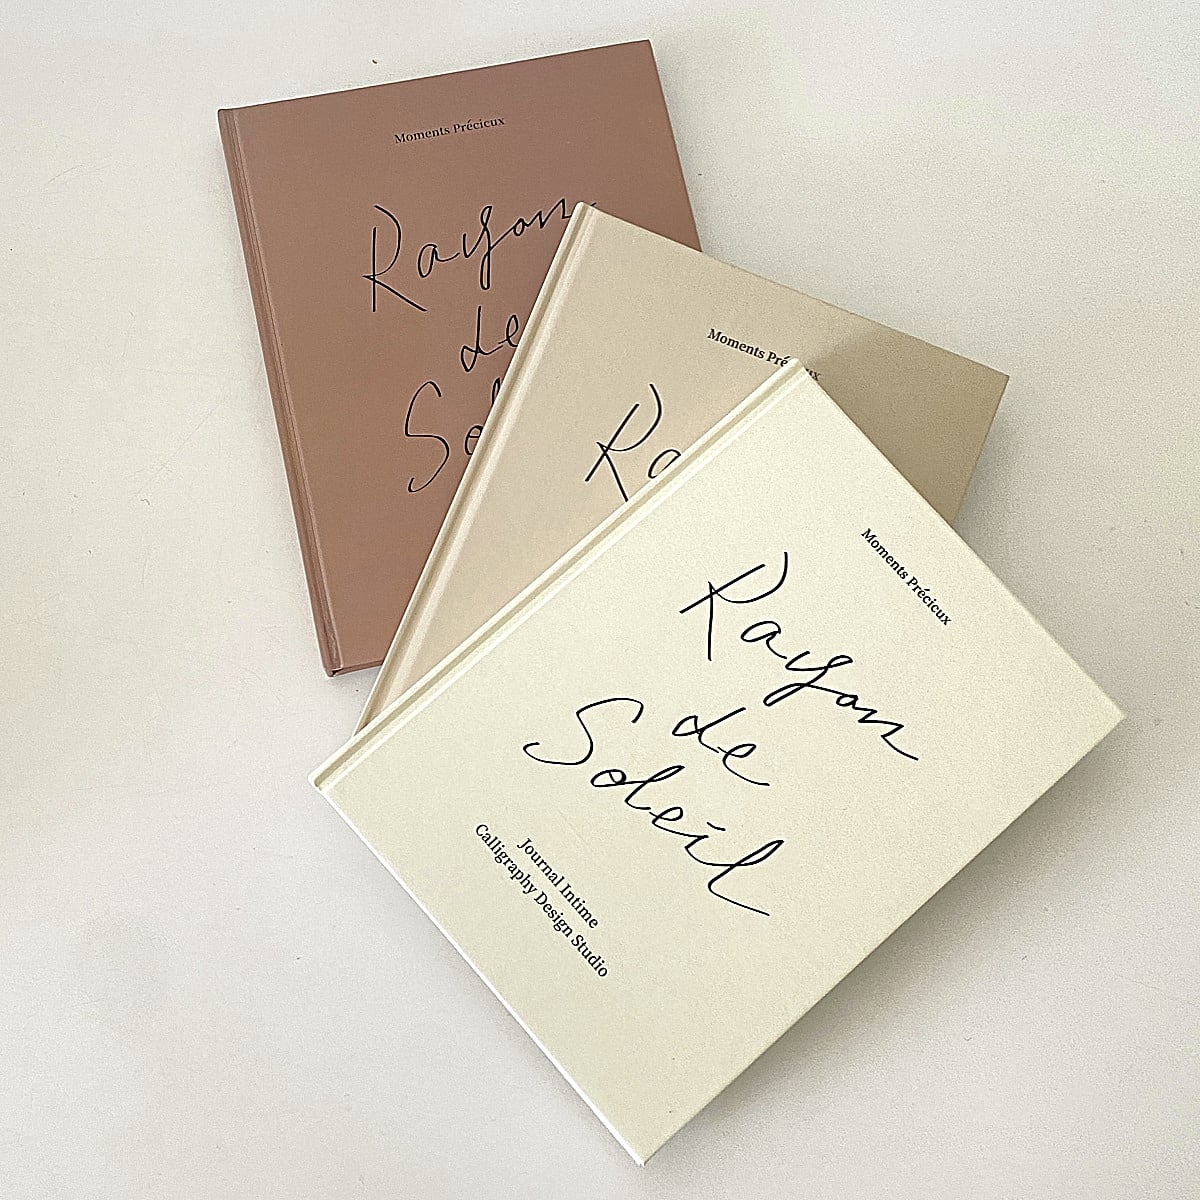 Moments Précieux
Rayon
de
So
Moments Pré
Ra
Moments Précieux
Rayon
de
Soleil
Journal Intime
Calligraphy Design Studio